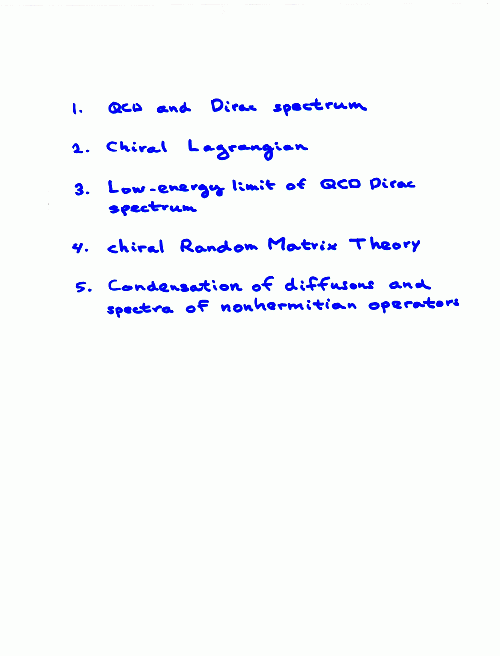 1. QCD and Dirac spectrum
2. Chiral Lagrangian
3. Low-energy limit of QCD Dirac
spectrum
4. chiral Random Matrix Theory
5. Condensation of diffusons and
spectra of nonhermitian operators